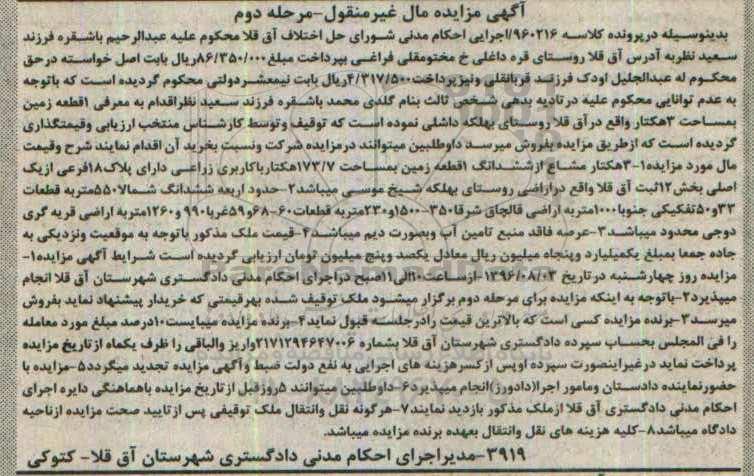 آگهی مزایده مال غیرمنقول-مرحله دوم
بدینوسیله درپرونده کلاسه ۹۶۰۲۱۶/اجرایی احکام مدنی شورای حل اختلاف آق قلا محکوم علیه عبدالرحیم باشقره فرزند
سعید نظربه آدرس آق قلا روستای قره داغلی خ مختومقلی فراغی بپرداخت مبلغ۸۶/۳۵۰/۰۰۰ریال بابت اصل خواسته درحق
محکوم له عبدالجلیل اودک فرزند قربانقلی ونیزپرداخت۴/۳۱۷/۵۰۰ریال بابت نیمعشردولتی محکوم گردیده است که باتوجه
به عدم توانایی محکوم علیه درتادیه بدهی شخص ثالث بنام گلدی محمد باشقره فرزند سعید نظراقدام به معرفی ۱قطعه زمین
بمساحت ۳هکتار واقع درآق قلا روستای بهلکه داشلی نموده است که توقیف وتوسط کارشناس منتخب ارزیابی وقیمتگذاری
گردیده است که ازطریق مزایده بفروش میرسد داوطلبین میتوانند درمزایده شرکت ونسبت بخرید آن اقدام نمایند شرح وقیمت
مال مورد مزایده۱-۳هکتار مشاع ازششدانگ ۱قطعه زمین بمساحت ۱۷۳/۷هکتارباکاربری زراعی دارای پلاک۱۸فرعی ازیک
اصلی بخش۱۲ثبت آق قلا واقع دراراضی روستای بهلکه شیخ موسی میباشد۲-حدود اربعه ششدانگ شمالا۵۵۰متربه قطعات
۳۳و۵۰تفکیکی جنوبا۱۰۰۰متربه اراضی قالچاق شرقا۳۵۰-۱۵۰۰و۲۳۰متربه قطعات۶۰-۶۸و۵۹غربا۹۹۰و۱۲۶۰متربه اراضی قریه گری
دوجی محدود میباشد۳-عرصه فاقد منبع تامین آب وبصورت دیم میباشد۴-قیمت ملک مذکور باتوجه به موقعیت ونزدیکی به
جاده جمعا بمبلغ یکمیلیارد وپنجاه میلیون ریال معادل یکصد وپنج میلیون تومان ارزیابی گردیده است شرایط آگهی مزایده۱-
مزایده روز چهارشنبه درتاریخ ۱۳۹۶/۰۸/۰۳-ازساعت۱۰الی۱۱صبح دراجرای احکام مدنی دادگستری شهرستان آق قلا انجام
میپذیرد۲-باتوجه به اینکه مزایده برای مرحله دوم برگزار میشود ملک توقیف شده بهرقیمتی که خریدار پیشنهاد نماید بفروش
میرسد۳-برنده مزایده کسی است که بالاترین قیمت رادرجلسه قبول نماید۴-برنده مزایده میبایست۱۰درصد مبلغ مورد معامله
را فی المجلس بحساب سپرده دادگستری شهرستان آق قلا بشماره ۲۱۷۱۲۹۴۶۴۷۰۰۶واریز والباقی را ظرف یکماه ازتاریخ مزایده
پرداخت نماید درغیراینصورت سپرده اوپس ازکسرهزینه های اجرایی به نفع دولت ضبط وآگهی مزایده تجدید میگردد۵-مزایده با
حضورنماینده دادستان ومامور اجرا(دادورز)انجام میپذیرد۶-داوطلبین میتوانند ۵روزقبل ازتاریخ مزایده باهماهنگی دایره اجرای
احکام مدنی دادگستری آق قلا ازملک مذکور بازدید نمایند۷-هرگونه نقل وانتقال ملک توقیفی پس ازتایید صحت مزایده ازناحیه
دادگاه میباشد۸-کلیه هزینه های نقل وانتقال بعهده برنده مزایده میباشد.
۳۹۱۹-مدیراجرای احکام مدنی دادگستری شهرستان آق قلا- کتوکی